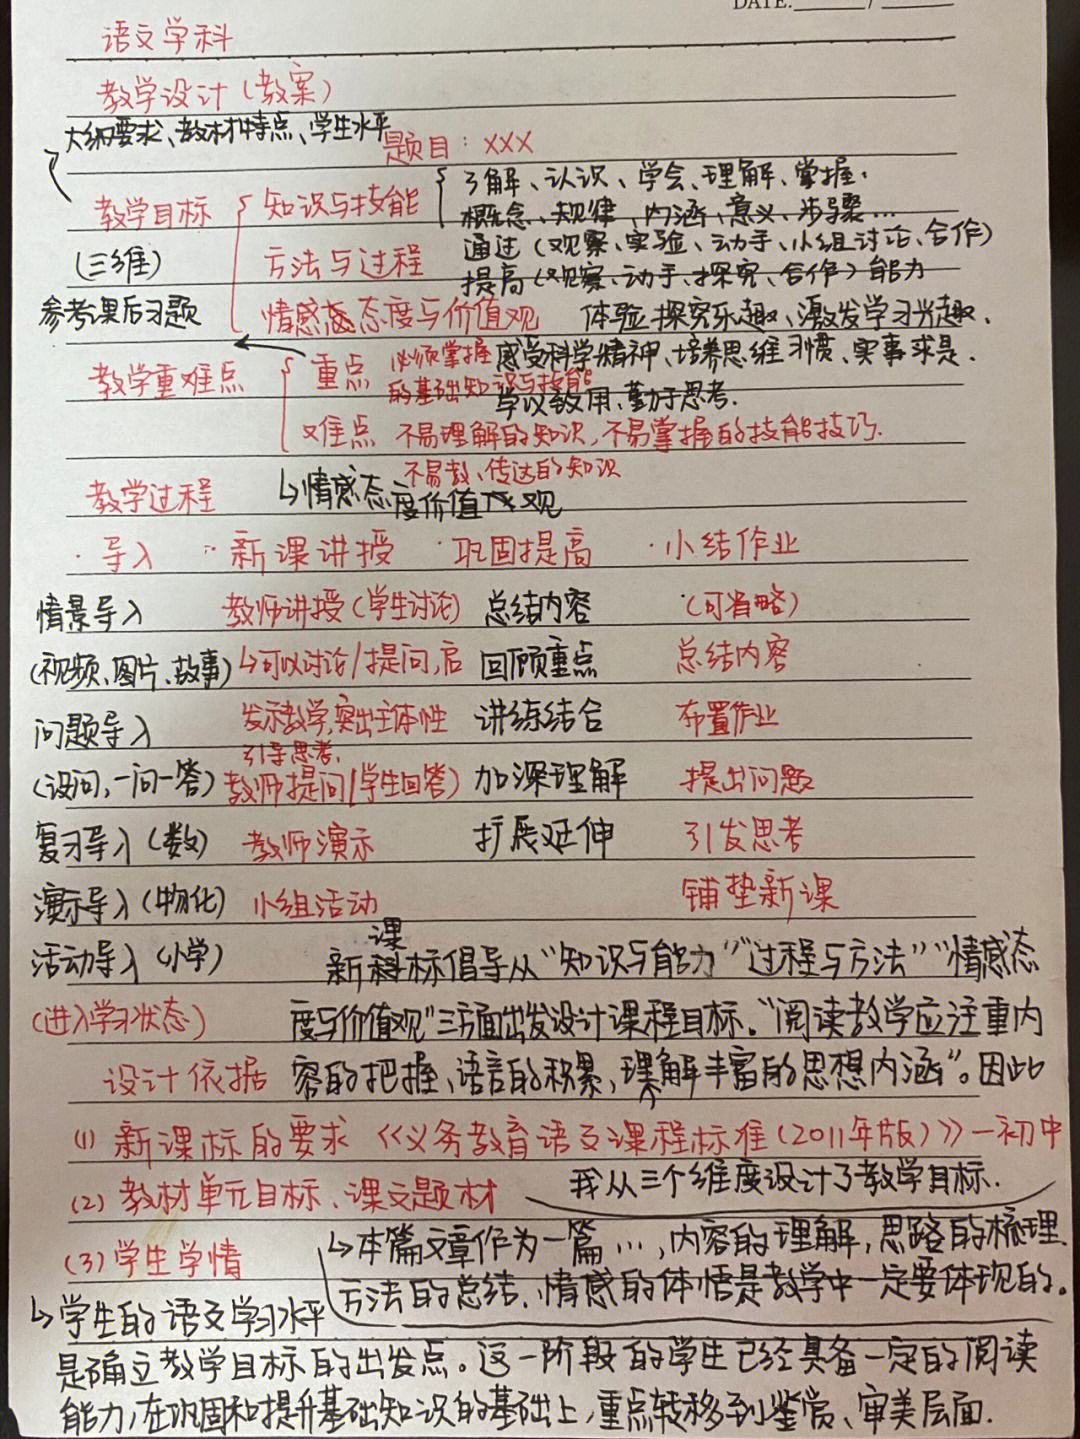 DATE:
语文学科
教学设计(教案)
大纲要求、教材特点、学生水平
题目:XXX
教学目标 知识与技能 了解、认识、学会、理解、掌握.
概念、规律、内涵、意义、步骤…
(三维) 方法与过程 通过(观察、实验、动手、小组讨论、合作)
提高(观察、动手、探究、合作)能力
参考课后习题 情感态度与价值观 体验探究乐趣、激发学习兴趣.
感受科学精神、培养思维习惯、实事求是.
学以致用、勤于思考.
教学重难点 重点 必须掌握
的基础知识与技能
难点 不易理解的知识,不易掌握的技能技巧.
不易教、传达的知识
↳情感态度价值观
教学过程
·导入 ·新课讲授 ·巩固提高 ·小结作业
情景导入 教师讲授(学生讨论) 总结内容 (可省略)
(视频、图片、故事) ↳可以讨论/提问,启 回顾重点 总结内容
问题导入 发示教学,突出主体性 讲练结合 布置作业
引导思考,
(设问,一问一答) 教师提问/学生回答) 加深理解 提出问题
复习导入(数) 教师演示 扩展延伸 引发思考
演示导入(物化) 小组活动 铺垫新课
活动导入(小学) 新课标倡导从“知识与能力”“过程与方法”“情感态
(进入学习状态) 度与价值观”三方面出发设计课程目标。“阅读教学应注重内
设计依据 容的把握、语言的积累,理解丰富的思想内涵”。因此
(1) 新课标的要求《义务教育语文课程标准(2011年版)》—初中
我从三个维度设计了教学目标.
(2) 教材单元目标、课文题材
↳本篇文章作为一篇…,内容的理解,思路的梳理
(3) 学生学情
方法的总结、情感的体悟是教学中一定要体现的。
↳学生的语文学习水平
是确立教学目标的出发点。这一阶段的学生已经具备一定的阅读
能力,在巩固和提升基础知识的基础上,重点转移到鉴赏、审美层面.